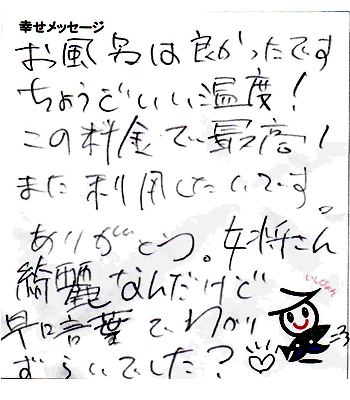 幸せメッセージ
お風呂は良かったです
ちょうどいい温度!
この料金で最高!
また利用したいです。
ありがとう。女将さん
綺麗なんだけど
早口言葉でわかり
ずらいでした?